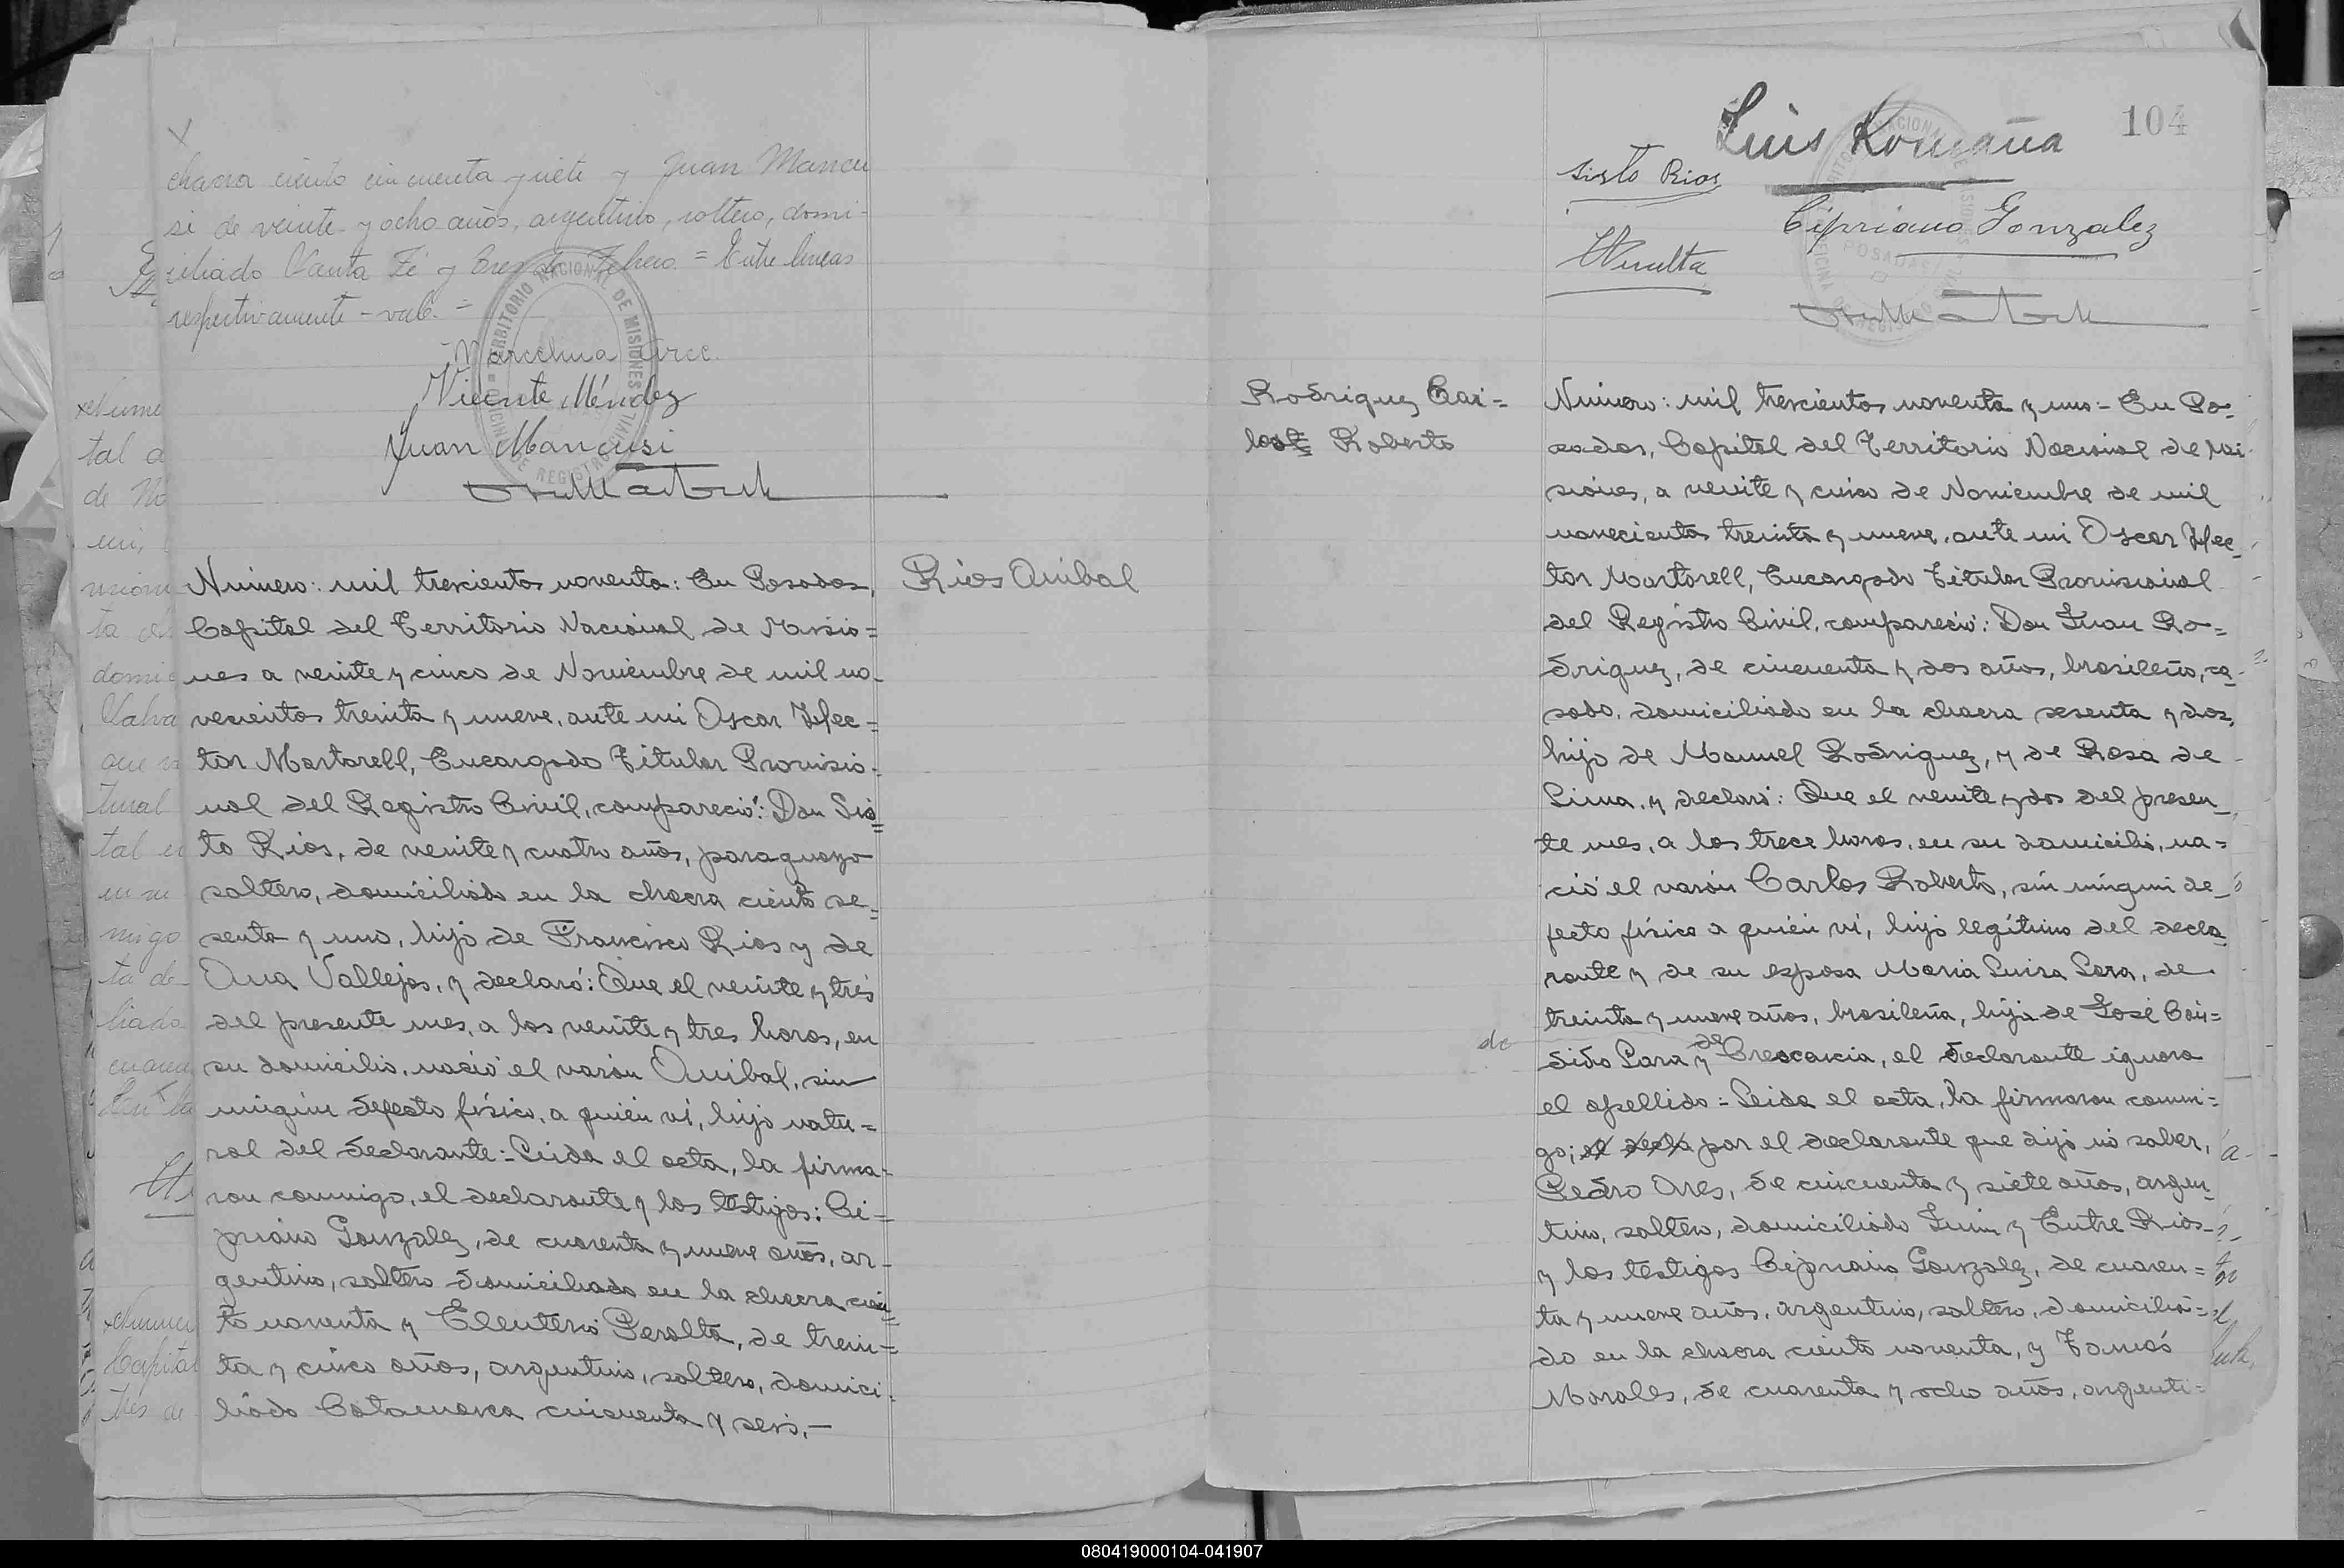 chacra ciento cincuenta y siete y Juan Mancu
si de veinte y ocho años, argentino, soltero, domi-
ciliado Santa Fé y Tres de Febrero = Entre lineas
respectivamente - vale. =
Marcelina Arce.
Vicente Méndez
Juan Mancusi
TERRITORIO NACIONAL DE MISIONES
OFICINA DE REGISTRO CIVIL
Número: mil trescientos noventa: En Posadas,
Capital del Territorio Nacional de Misio=
nes a veinte y cinco de Noviembre de mil no-
vecientos treinta y nueve, ante mi Oscar Hec=
tor Martorell, Encargado Titular Provisio-
nal del Registro Civil, compareció: Don Sis=
to Rios, de veinte y cuatro años, paraguayo
soltero, domiciliado en la chacra ciento se=
senta y uno, hijo de Francisco Rios y de
Ana Vallejos, y declaró: Que el veinte y tres
del presente mes, a las veinte y tres horas, en
su domicilio, nació el varón Anibal, sin
ningún defecto físico, a quién ví, hijo natu=
ral del declarante:- Leida el acta, la firma-
ron conmigo, el declarante y los testigos: Ci=
priano Gonzalez, de cuarenta y nueve años, ar-
gentino, soltero domiciliado en la chacra cien=
to noventa y Eleuterio Peralta, de trein=
ta y cinco años, argentino, soltero, domici-
liado Catamarca cincuenta y seis.-
Rios Anibal
104
Luis Romaña
Sisto Rios
Cipriano Gonzalez
EPeralta
POSADAS
Rodriguez Car=
los Roberto
Número: mil trescientos noventa y uno:- En Po-
sadas, Capital del Territorio Nacional de Mi-
siones, a veinte y cinco de Noviembre de mil
novecientos treinta y nueve, ante mi Oscar Hec-
tor Martorell, Encargado Titular Provisional
del Registro Civil, compareció: Don Juan Ro-
driguez, de cincuenta y dos años, brasileño, ca-
sado, domiciliado en la chacra sesenta y dos,
hijo de Manuel Rodriguez, y de Rosa de
Lima, y declaró: Que el veinte y dos del presen-
te mes, a las trece horas, en su domicilio, na=
ció el varón Carlos Roberto, sin ningun de-
fecto físico a quién ví, hijo legítimo del decla
rante y de su esposa Maria Luisa Lara, de
treinta y nueve años, brasileña, hija de José Cán=
de
dido Lara y de Crescencia, el declarante ignora
el apellido:- Leida el acta, la firmaron conmi=
go; el decla por el declarante que dijo no saber,
Pedro Ares, de cincuenta y siete años, argen-
tino, soltero, domiciliado Junin y Entre Rios-
y los testigos Cipriano Gonzalez, de cuaren=
ta y nueve años, argentino, soltero, domicilia=
do en la chacra ciento noventa, y Tomás
Morales, de cuarenta y ocho años, argenti=
080419000104-041907